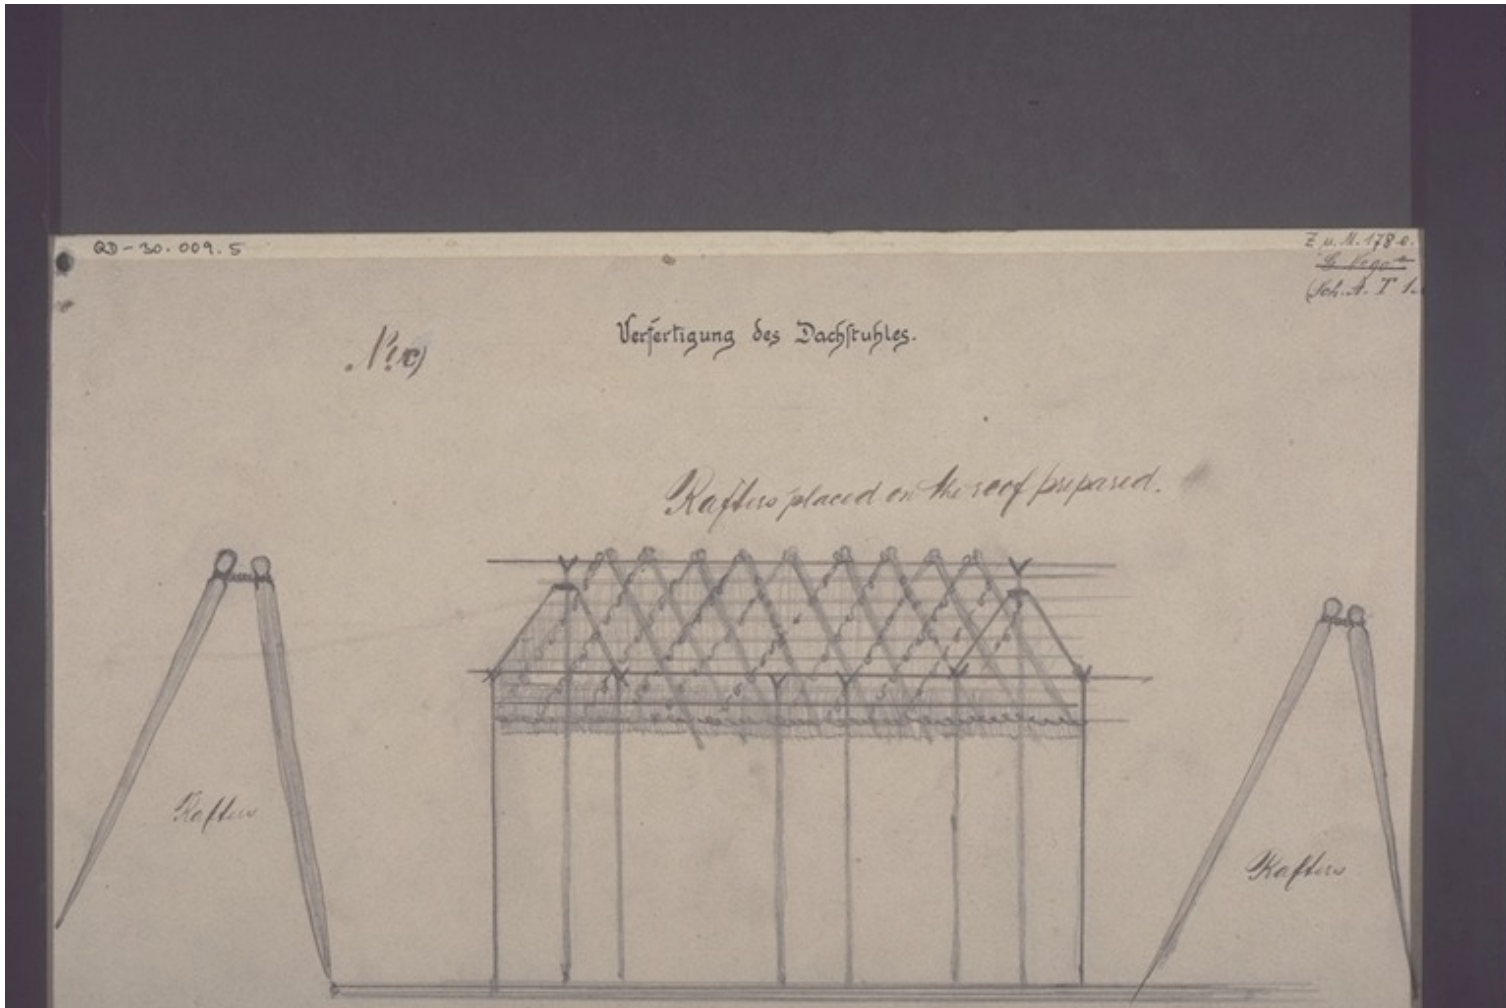 QD-30.009.5
Z u. M. 178 e.
(Sch. A. T 1.
Verfertigung des Dachstuhles.
Rafters placed on the roof prepared.
Rafters
Rafters